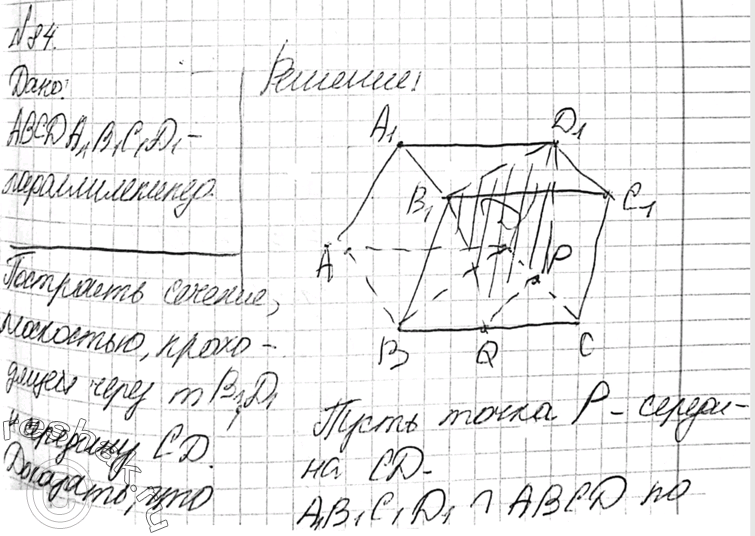 №84.
Дано:
ABCDA₁B₁C₁D₁-
параллилепипед.
Построить сечение,
плоскостью, прохо-
дящей через т B₁, D₁
и середину CD.
Доказать, что
Решение:
A₁
D₁
B₁
C₁
A
P
B
Q
C
Пусть точка P - середи-
на CD.
A₁B₁C₁D₁ ∩ ABCD по